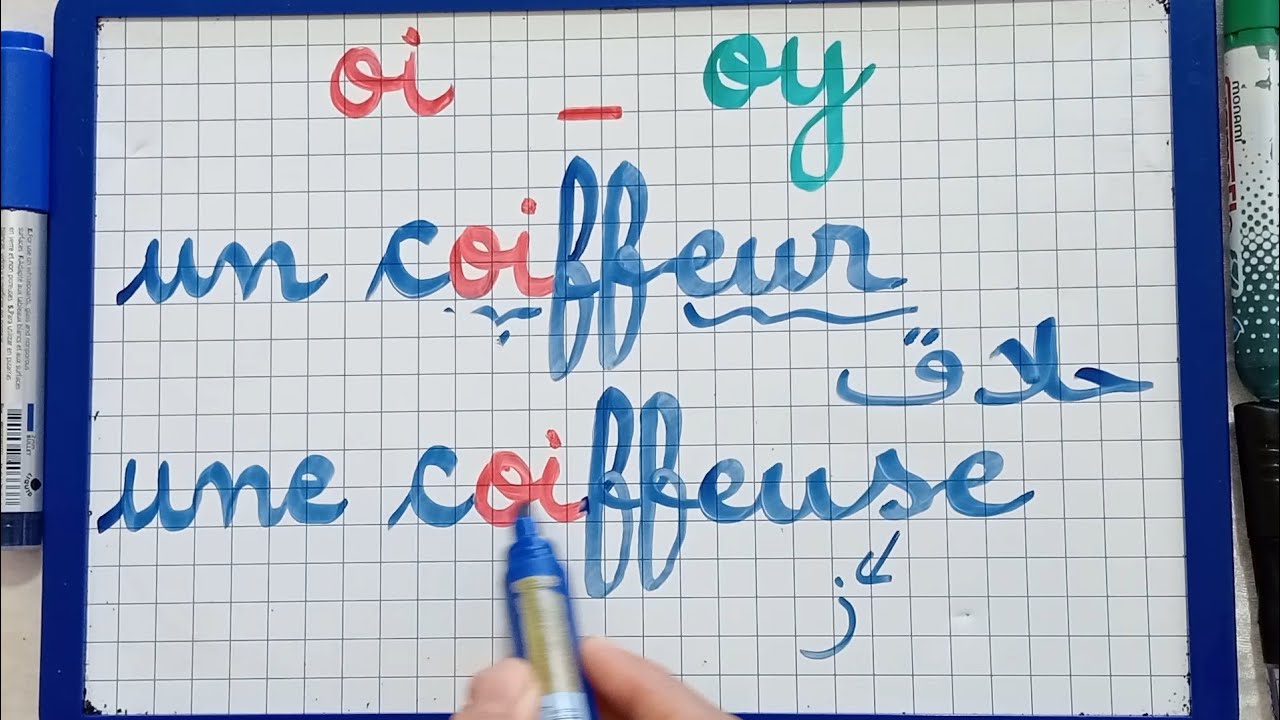 oi _ oy
un coiffeur
حلاق
une coiffeuse
ز
monami